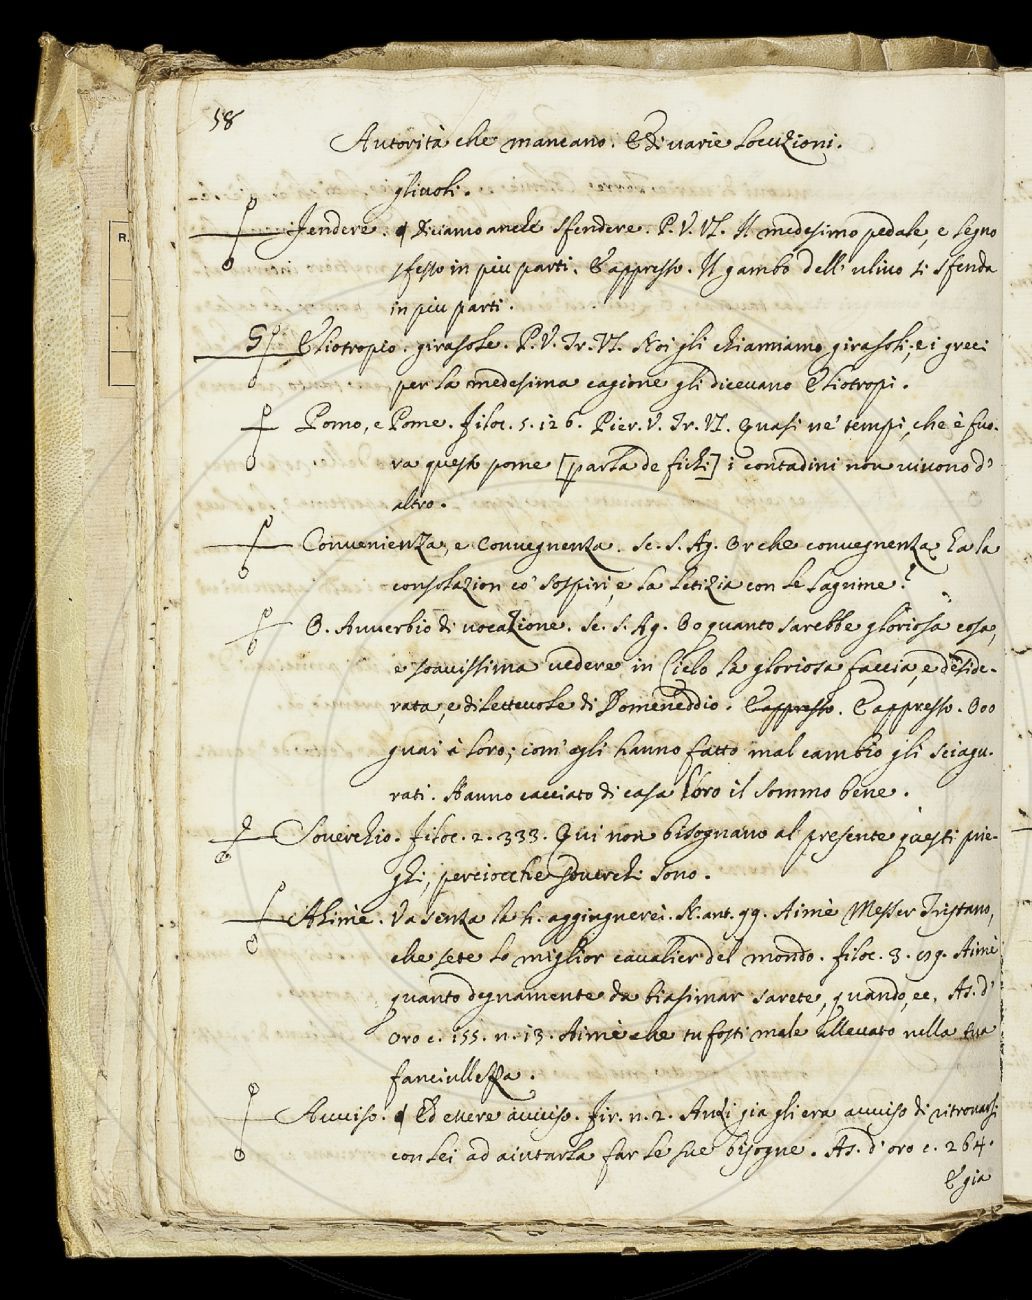 58
Autorità che mancano. E di varie Locuzioni.
gliuoli.
Fendere. ¶ Diciamo anche sfendere. P. V. VI. Il medesimo pedale, e legno
sfesso in piu parti. E appresso. Il gambo dell' ulivo si sfenda
in piu parti.
Elitropio. girasole. P. V. Tr. VI. Noi gli chiamiamo girasoli; e i greci
per la medesima cagione gli dicevano Elitropi.
Pomo, e Pome. Filoc. 5. 126. Pier. V. Tr. VI. Quasi ne' tempi, che è fuo-
ra queste pome [parla de fichi] i contadini non vivono d'
altro.
Convenienza, e Convegnenza. Se. S. Ag. Or che convegnenza ha la
consolazion co' sospiri, e la letizia con le lagrime?
O. Avverbio di vocazione. Se. S. Ag. Oo quanto sarebbe gloriosa cosa,
e soavissima vedere in Cielo la gloriosa faccia, e deside-
rata, e dilettevole di Domeneddio. E appresso. E appresso. Ooo
guai à loro; com' egli hanno fatto mal cambio gli sciagu-
rati. Hanno cacciato di casa loro il sommo bene.
Soverchio. Filoc. 2. 333. Qui non bisognano al presente questi prie-
ghi, perciocche soverchi sono.
Ahimè. Va senza la h. aggiugnerei. N. ant. 99. Aimè Messer Tristano,
che sete lo miglior cavalier del mondo. Filoc. 3. Aimè
quanto degnamente da biasimar sarete, quando, ec. As. d'
oro c. 155. n. 13. Aimè che tu fosti male allevato nella tua
fanciullezza.
Avviso. ¶ Ed essere avviso. Fir. n. 2. Anzi gia gli era avviso di ritrovarsi
con lei ad aiutarla far le sue bisogne. As. d' oro c. 264.
E gia